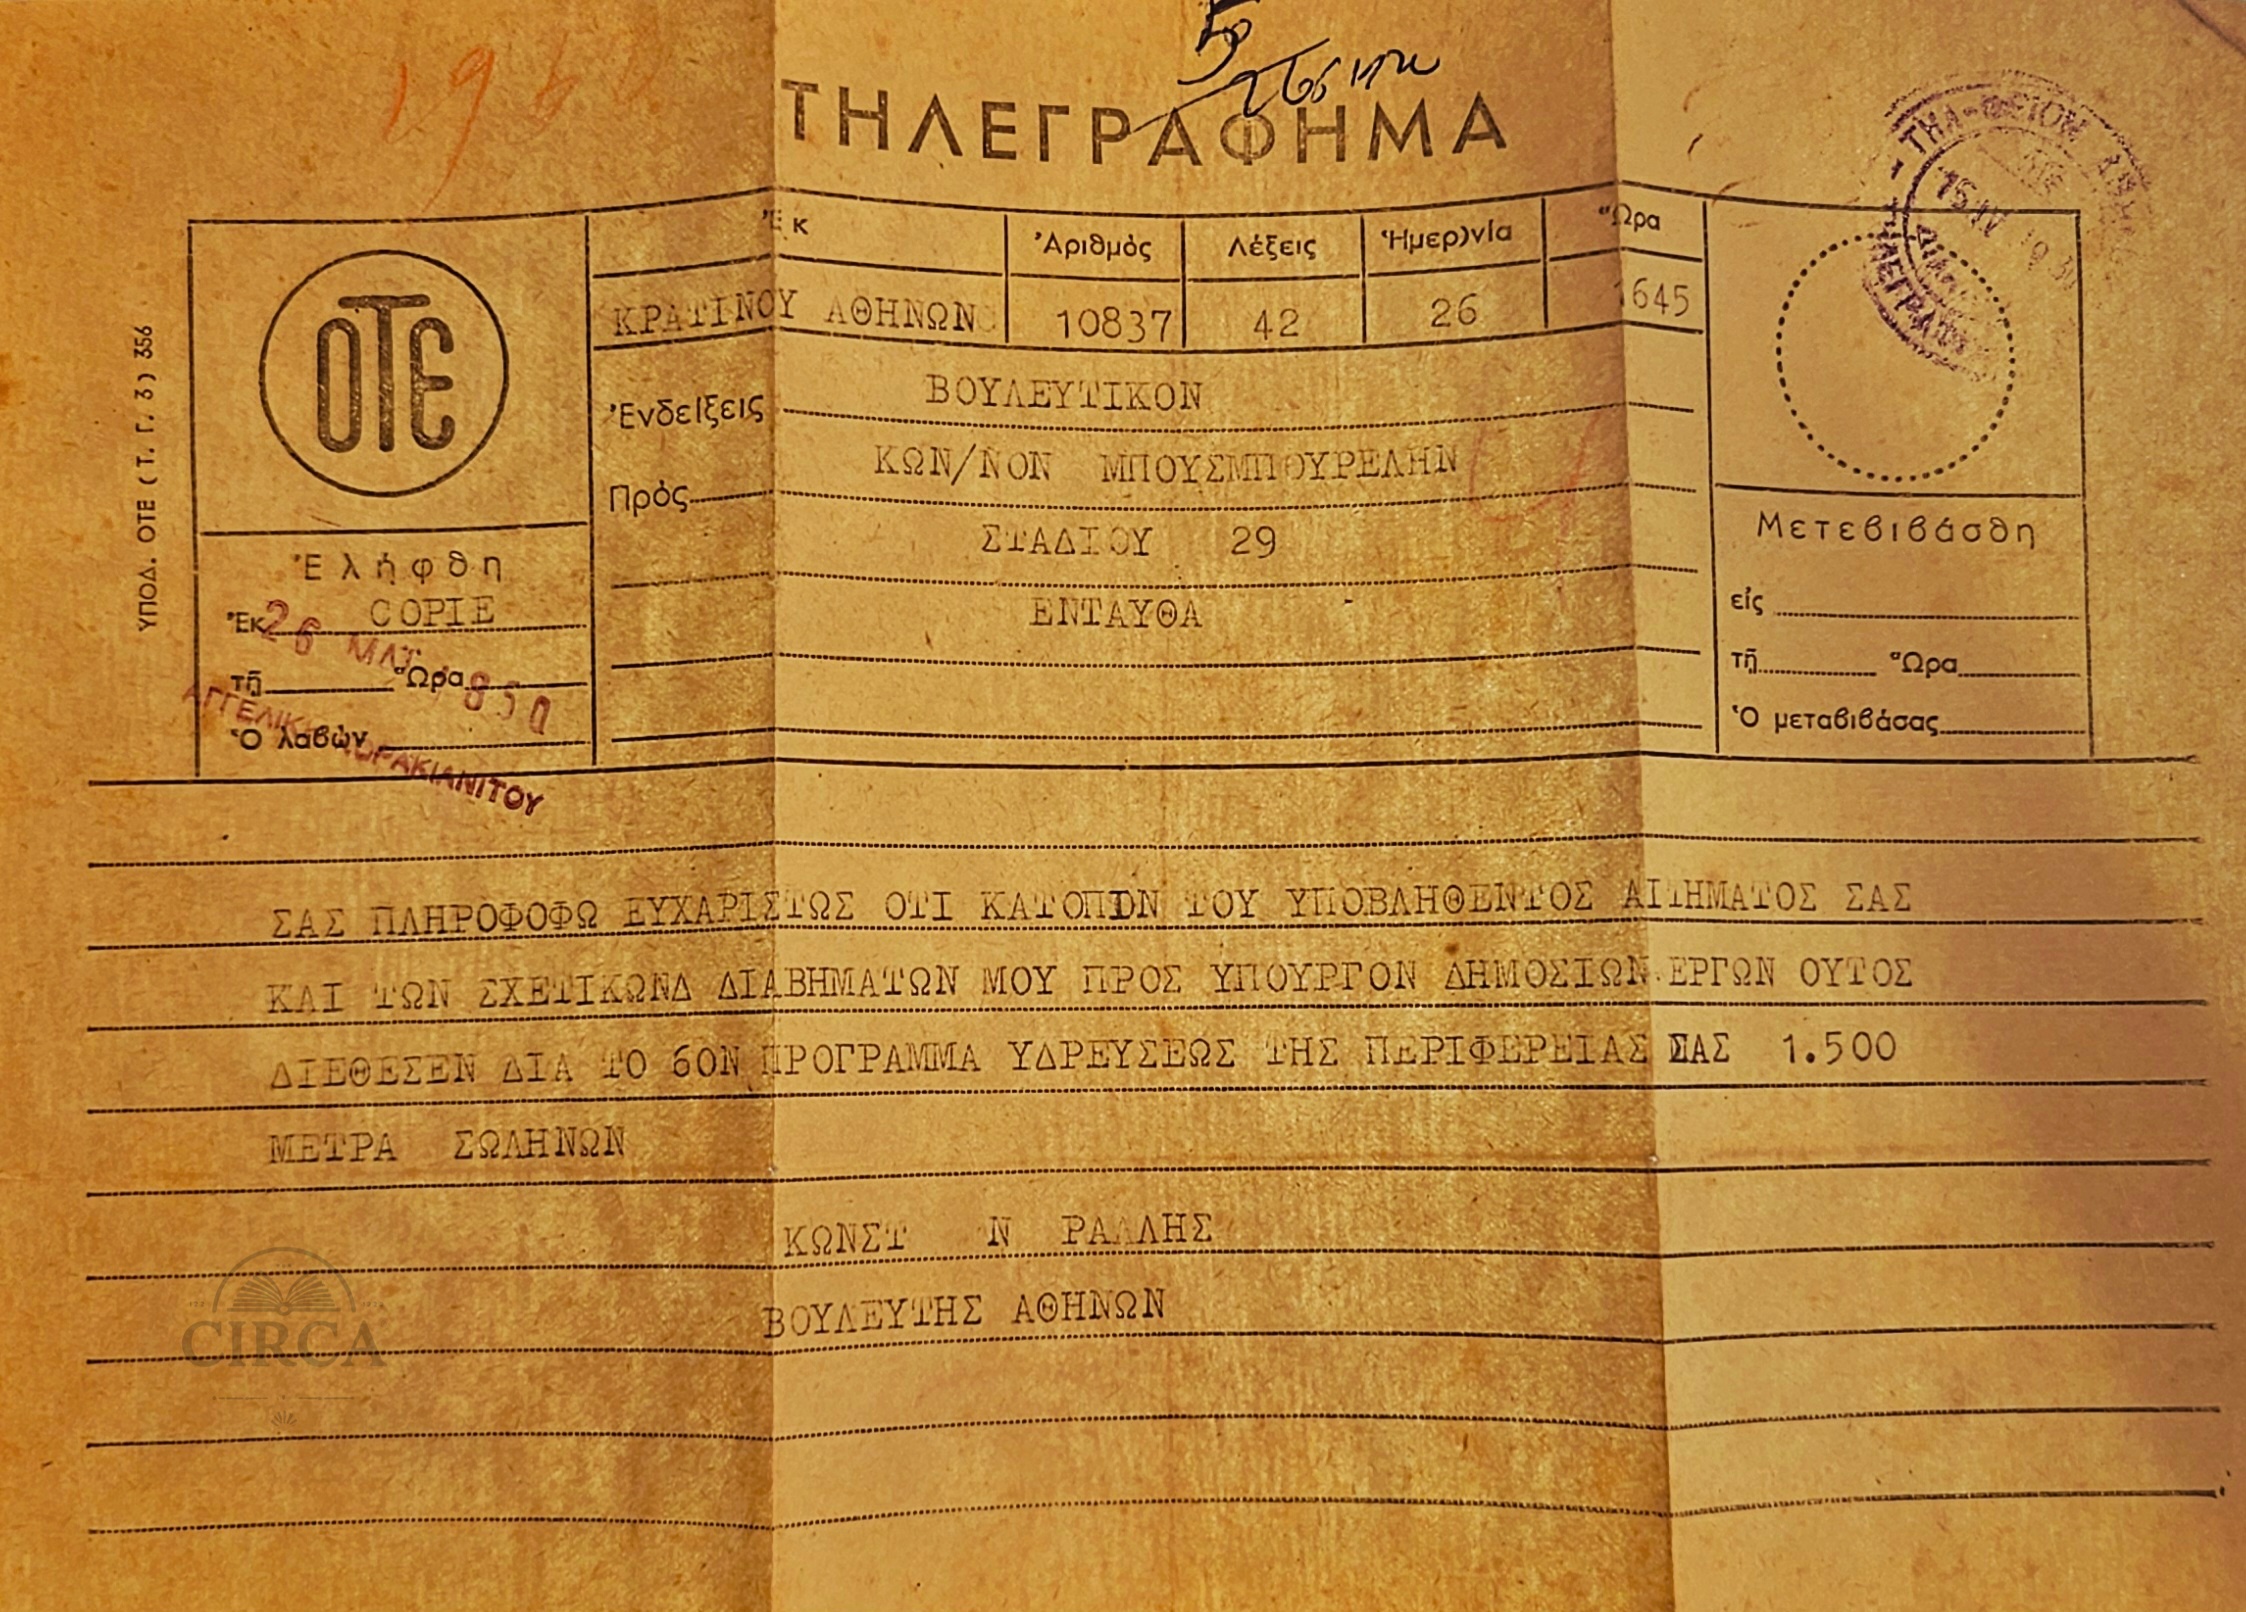 ΤΗΛΕΓΡΑΦΗΜΑ
ΥΠΟΔ. ΟΤΕ (Τ. Γ. 3) 356
ΟΤΕ
Ἐκ Ἀριθμός Λέξεις Ἡμερ)νία Ὥρα
ΚΡΑΤΙΝΟΥ ΑΘΗΝΩΝ 10837 42 26 1645
Ἐνδείξεις ΒΟΥΛΕΥΤΙΚΟΝ
Πρός ΚΩΝ/ΝΟΝ ΜΠΟΥΣΜΠΟΥΡΕΛΗΝ
ΣΤΑΔΙΟΥ 29
ΕΝΤΑΥΘΑ
Ἐλήφθη
Ἐκ COPIE
26 ΜΑΪ 1850
τῇ Ὥρα
Ὁ λαβών
Μετεβιβάσθη
εἰς
τῇ Ὥρα
Ὁ μεταβιβάσας
ΣΑΣ ΠΛΗΡΟΦΟΦΩ ΕΥΧΑΡΙΣΤΩΣ ΟΤΙ ΚΑΤΟΠΙΝ ΤΟΥ ΥΠΟΒΛΗΘΕΝΤΟΣ ΑΙΤΗΜΑΤΟΣ ΣΑΣ
ΚΑΙ ΤΩΝ ΣΧΕΤΙΚΩΝΔ ΔΙΑΒΗΜΑΤΩΝ ΜΟΥ ΠΡΟΣ ΥΠΟΥΡΓΟΝ ΔΗΜΟΣΙΩΝ ΕΡΓΩΝ ΟΥΤΟΣ
ΔΙΕΘΕΣΕΝ ΔΙΑ ΤΟ 6ΟΝ ΠΡΟΓΡΑΜΜΑ ΥΔΡΕΥΣΕΩΣ ΤΗΣ ΠΕΡΙΦΕΡΕΙΑΣ ΣΑΣ 1.500
ΜΕΤΡΑ ΣΩΛΗΝΩΝ
ΚΩΝΣΤ Ν ΡΑΛΛΗΣ
ΒΟΥΛΕΥΤΗΣ ΑΘΗΝΩΝ
CIRCA